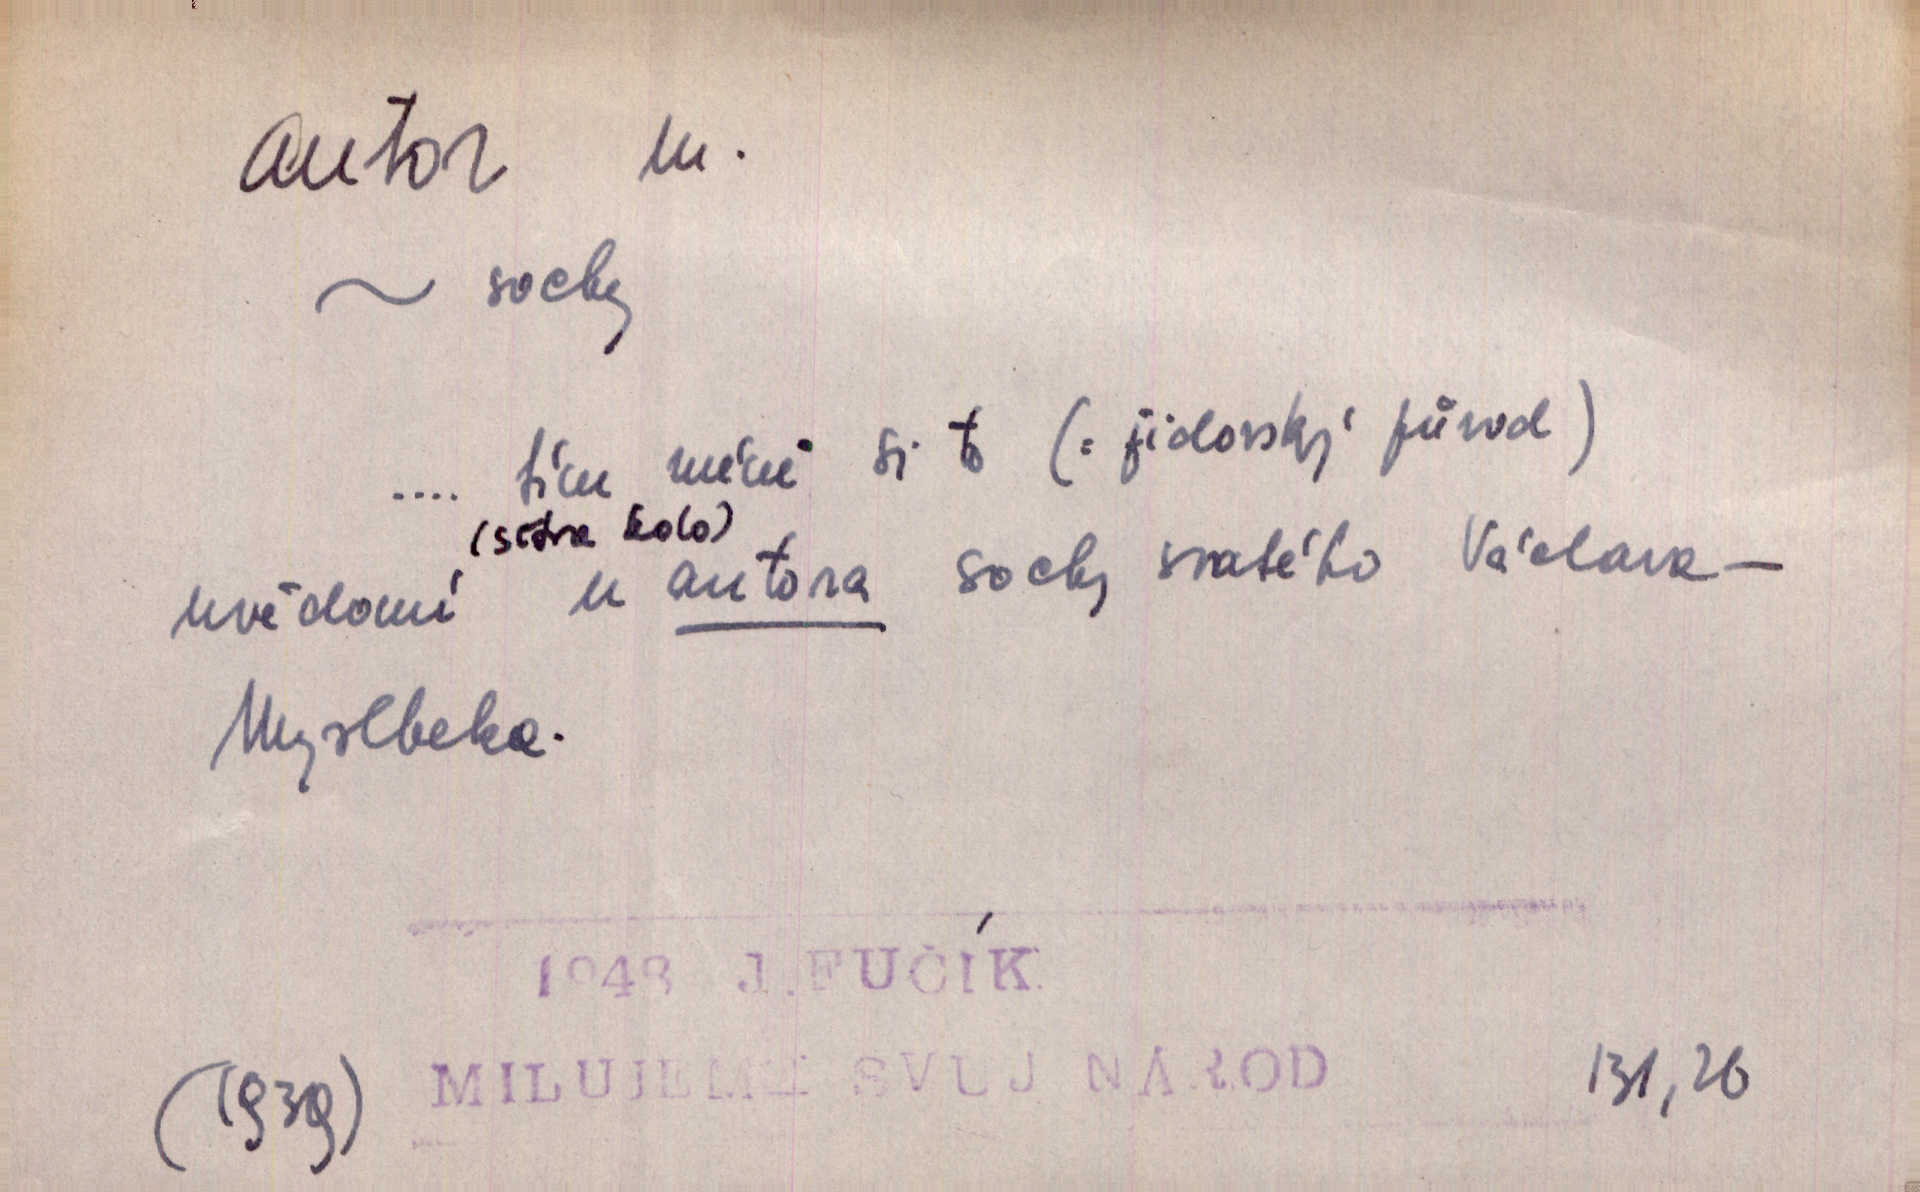 autor m.
~ sochy
.... tím méně si to (= židovský původ)
(sitra kolo)
uvědomí u autora sochy svatého Václava —
Myslbeka.
1948 J. FUČÍK
MILUJEME SVUJ NÁROD
(1939) 131,26